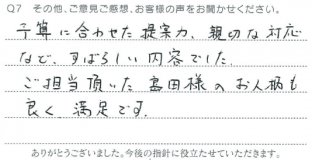 Q7 その他、ご意見ご感想、お客様の声をお聞かせください。
予算に合わせた提案力、親切な対応
など、すばらしい内容でした。
ご担当頂いた富田様のお人柄も
良く、満足です。
ありがとうございました。今後の指針に役立たせていただきます。